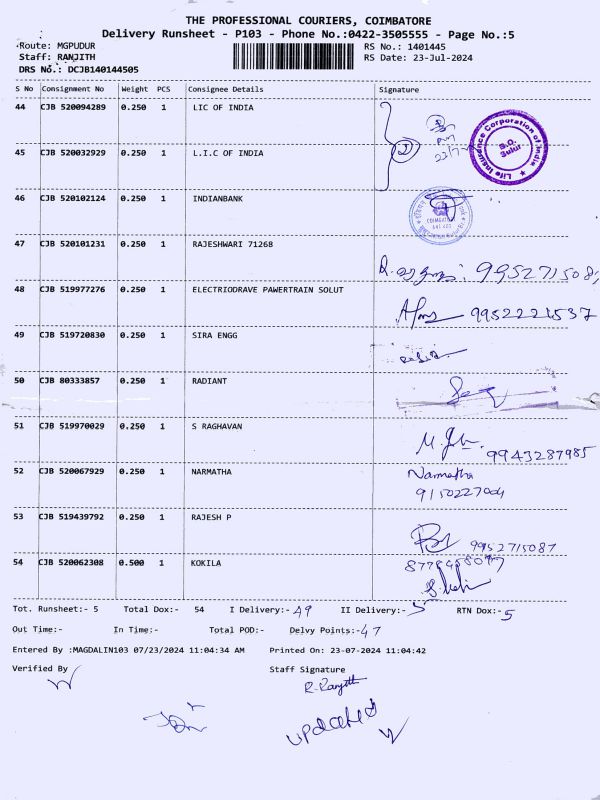 THE PROFESSIONAL COURIERS, COIMBATORE
Delivery Runsheet - P103 - Phone No.:0422-3505555 - Page No.:5
Route: MGPUDUR
RS No.: 1401445
Staff: RANJITH
RS Date: 23-Jul-2024
DRS No.: DCJB140144505
S No Consignment No Weight PCS Consignee Details Signature
44 CJB 520094289 0.250 1 LIC OF INDIA
Life Insurance Corporation of India
B.O.
Sulur
2
45 CJB 520032929 0.250 1 L.I.C OF INDIA
46 CJB 520102124 0.250 1 INDIANBANK
47 CJB 520101231 0.250 1 RAJESHWARI 71268
48 CJB 519977276 0.250 1 ELECTRIODRAVE PAWERTRAIN SOLUT
9952221537
49 CJB 519720830 0.250 1 SIRA ENGG
50 CJB 80333857 0.250 1 RADIANT
51 CJB 519970029 0.250 1 S RAGHAVAN
9943287985
52 CJB 520067929 0.250 1 NARMATHA
Narmatha
9150227004
53 CJB 519439792 0.250 1 RAJESH P
9952715087
54 CJB 520062308 0.500 1 KOKILA
Tot. Runsheet:- 5 Total Dox:- 54 I Delivery:- 49 II Delivery:- 5 RTN Dox:- 5
Out Time:- In Time:- Total POD:- Delvy Points:- 47
Entered By :MAGDALIN103 07/23/2024 11:04:34 AM Printed On: 23-07-2024 11:04:42
Verified By Staff Signature
R. Ranjith
updated